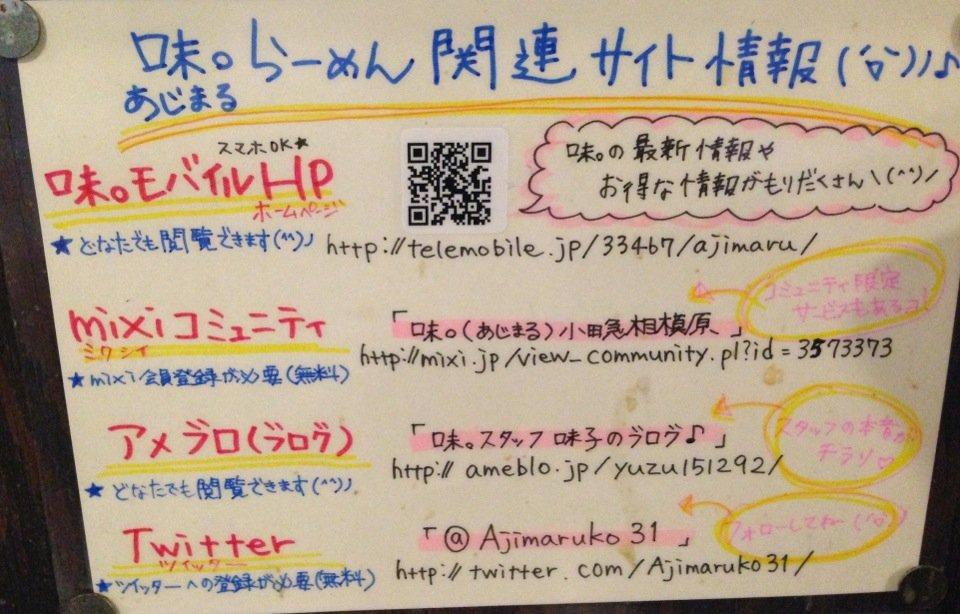 味。らーめん関連サイト情報(^o^)ノ♪
あじまる
スマホOK★
味。モバイルHP
ホームページ
味。の最新情報や
お得な情報がもりだくさん＼(^^)／
★どなたでも閲覧できます(^^)♪
http://telemobile.jp/33467/ajimaru/
コミュニティ限定
サービスもあるヨ!
mixiコミュニティ
ミクシイ
「味。(あじまる)小田急相模原」
http://mixi.jp/view_community.pl?id=3573373
★mixi会員登録が必要(無料)
アメブロ(ブログ)
「味。スタッフ味子のブログ♪」
スタッフの本音が
チラリ♡
http://ameblo.jp/yuzu151292/
★どなたでも閲覧できます(^^)♪
Twitter
ツイッター
「@Ajimaruko31」
フォローしてねー(^o^)
http://twitter.com/Ajimaruko31/
★ツイッターへの登録が必要(無料)